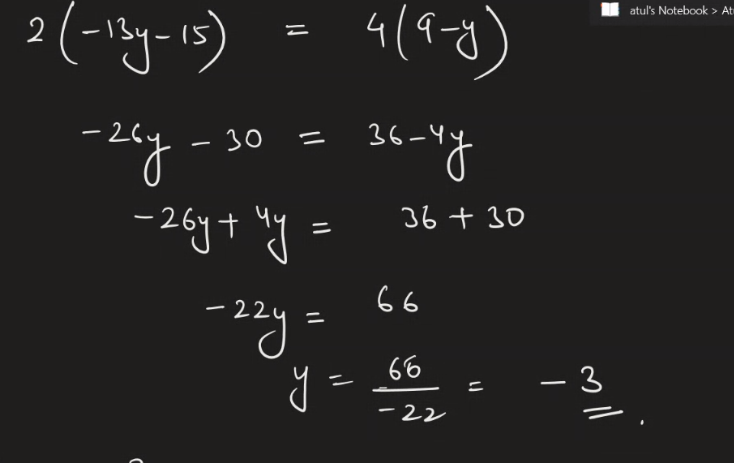 atul's Notebook > At
2(-13y-15) = 4(9-y)
-26y - 30 = 36-4y
-26y + 4y = 36 + 30
-22y = 66
y = 66/-22 = -3.